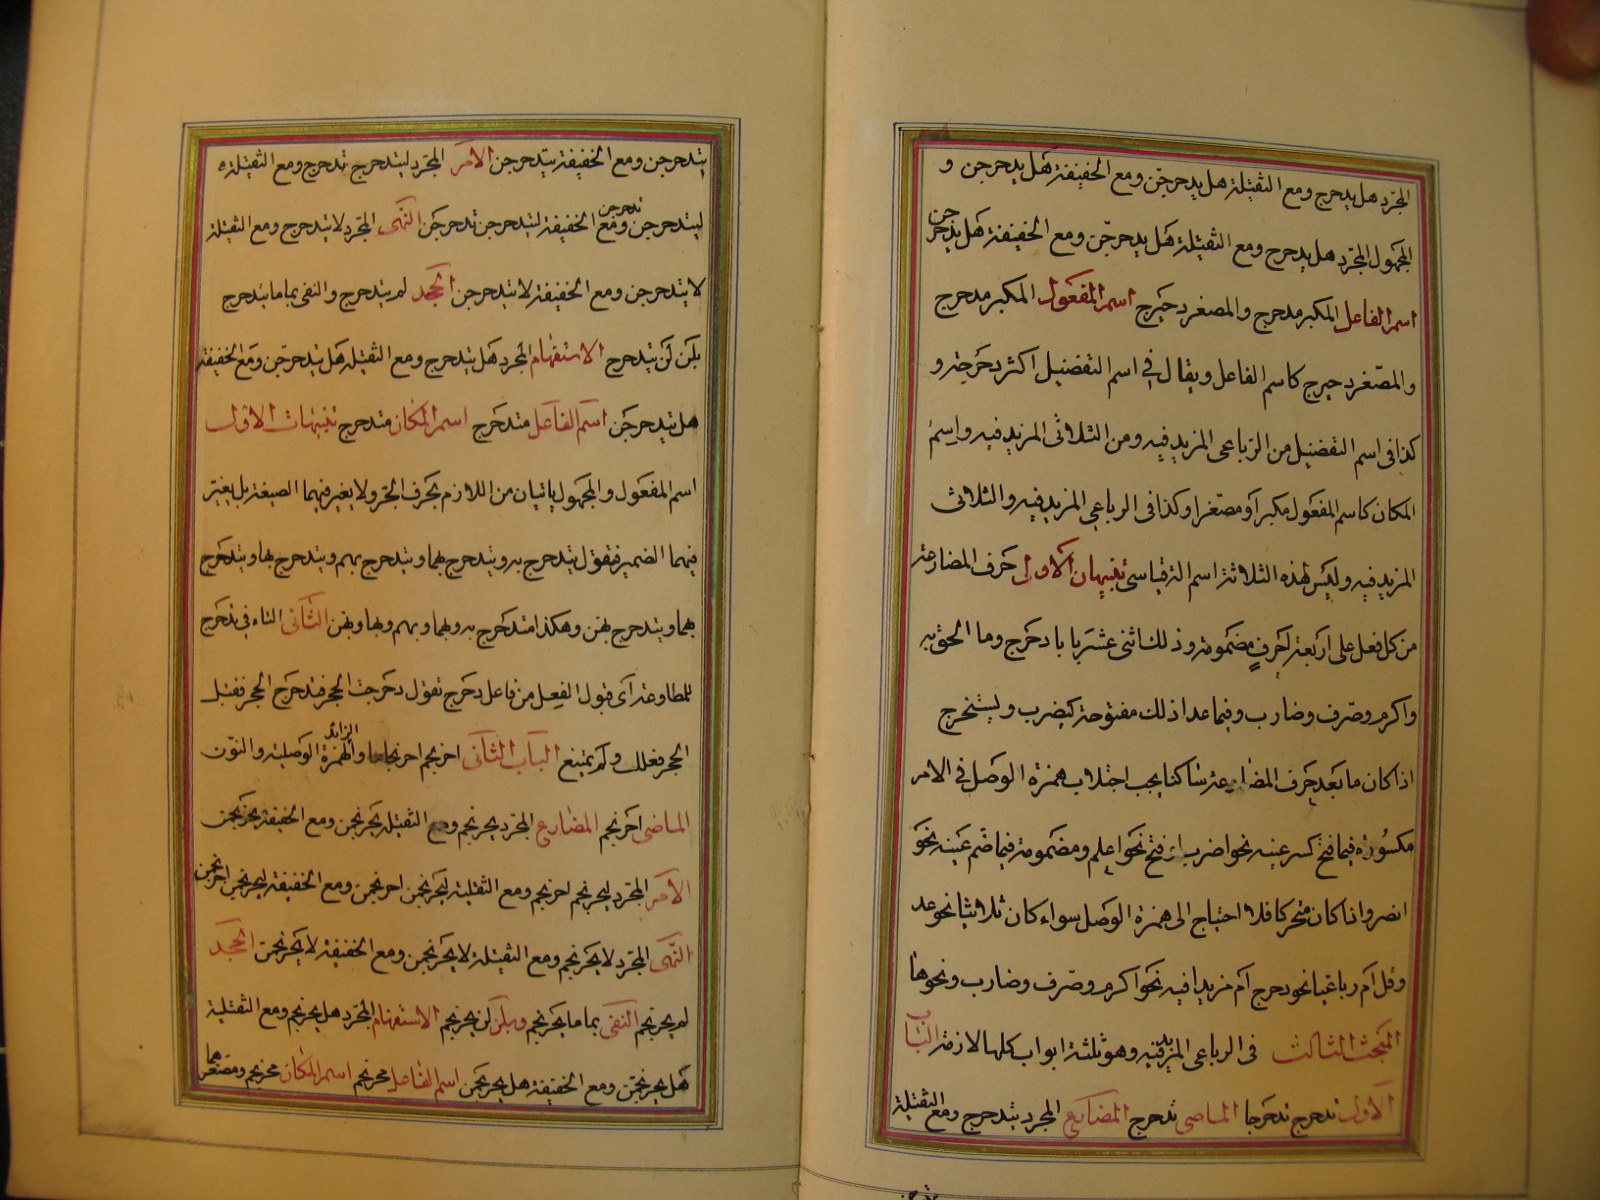 المجرد هل يدحرج ومع الثقيلة هل يدحرجن ومع الخفيفة هل يدحرجن و
المجهول المجرد هل يدحرج ومع الثقيلة هل يدحرجن ومع الخفيفة هل يدحرجن
اسم الفاعل المكبر مدحرج والمصغر دحيرج اسم المفعول المكبر مدحرج
والمصغر دحيرج كاسم الفاعل ويقال في اسم التفضيل اكثر دحرجة و
كذا في اسم التفضيل من الرباعي المزيد فيه ومن الثلاثى المزيد فيه واسم
المكان كاسم المفعول مكبرا او مصغرا وكذا فى الرباعي المزيد فيه والثلاثى
المزيد فيه وليس لهذه الثلاثة اسم الة قياسى تنبيهان الاول حرف المضارعة
من كل فعل على اربعة احرف مضمومة وذلك اثنى عشر بابا دحرج وما الحق به
واكرم وصرف وضارب وفيما عدا ذلك مفتوحة كيضرب ويستخرج
اذا كان ما بعد حرف المضارعة ساكنا يجب اجتلاب همزة الوصل فى الامر
مكسورة فيما فتح كسر عينه نحو اضرب او فتح نحو اعلم ومضمومة فيما ضم عينه نحو
انصر واذا كان متحركا فلا احتياج الى همزة الوصل سواء كان ثلاثيا نحو عد
وقل ام رباعيا نحو دحرج ام مزيدا فيه نحو اكرم وصرف وضارب ونحوها
المبحث الثالث فى الرباعى المزيد فيه وهو ثلثة ابواب كلها لازمة الباب
الاول تدحرج تدحرجا الماضى تدحرج المضارع المجرد يتدحرج ومع الثقيلة
يتدحرجن ومع الخفيفة يتدحرجن الامر المجرد ليتدحرج تدحرج ومع الثقيلة
ليتدحرجن تدحرجن ومع الخفيفة ليتدحرجن تدحرجن النهى المجرد لا يتدحرج ومع الثقيلة
لا يتدحرجن ومع الخفيفة لا يتدحرجن الجحد لم يتدحرج والنفى بما ما يتدحرج
بلن لن يتدحرج الاستفهام المجرد هل يتدحرج ومع الثقيلة هل يتدحرجن ومع الخفيفة
هل يتدحرجن اسم الفاعل متدحرج اسم المكان متدحرج تنبيهات الاول
اسم المفعول والمجهول ياتيان من اللازم بحرف الجر ولا يغير فيهما الصيغة بل يغير
فيهما الضمير فتقول يتدحرج به ويتدحرج بهما ويتدحرج بهم ويتدحرج بها ويتدحرج
بهما ويتدحرج بهن وهكذا متدحرج به وبهما وبهم وبها وبهن الثانى التاء في تدحرج
للمطاوعة اى قبول الفعل من فاعل دحرج تقول دحرجت الحجر فتدحرج الحجر فقبل
الحجر فعلك ولم يمتنع الباب الثانى احرنجم احرنجاما والزائد الهمزة الوصلية والنون
الماضى احرنجم المضارع المجرد يحرنجم ومع الثقيلة يحرنجمن ومع الخفيفة يحرنجمن
الامر المجرد ليحرنجم احرنجم ومع الثقيلة ليحرنجمن احرنجمن ومع الخفيفة ليحرنجمن احرنجمن
النهى المجرد لا يحرنجم ومع الثقيلة لا يحرنجمن ومع الخفيفة لا يحرنجمن الجحد
لم يحرنجم النفى بما ما يحرنجم وبلن لن يحرنجم الاستفهام المجرد هل يحرنجم ومع الثقيلة
هل يحرنجمن ومع الخفيفة هل يحرنجمن اسم الفاعل محرنجم اسم المكان محرنجم ومصغرهما